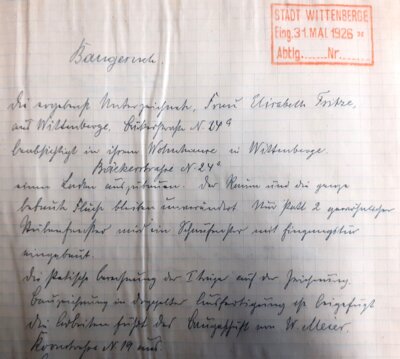 STADT WITTENBERGE
Eing. 31. MAI. 1926
Abtlg.......Nr.......
Baugesuch.
Die ergebenst Unterzeichnete, Frau Elisabeth Fritze,
aus Wittenberge, N. 24a
beabsichtigt in ihrem Wohnhause in Wittenberge.
Bäckerstrasse N. 24a
einen Laden auszubauen. Der Raum und die ganze
bebaute Fläche bleiben unverändert. Nur statt 2 gewöhnlicher
Stubenfenster wird ein Schaufenster mit Eingangstür
eingebaut.
Die statische Berechnung der I Träger auf der Zeichnung.
Bauzeichnung in doppelter Ausfertigung ist beigefügt
Die Arbeiten führt das Baugeschäft von W. Meier,
N 19 aus